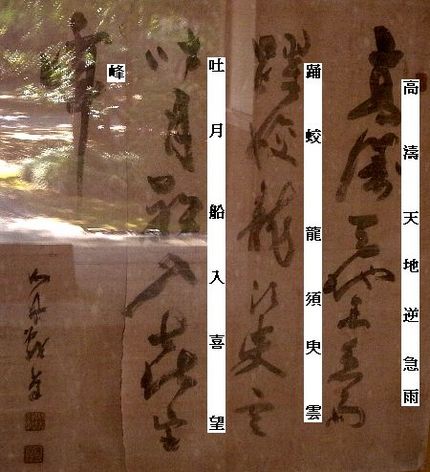 高濤天地逆急雨
踊蛟龍須臾雲
吐月船入喜望
峰